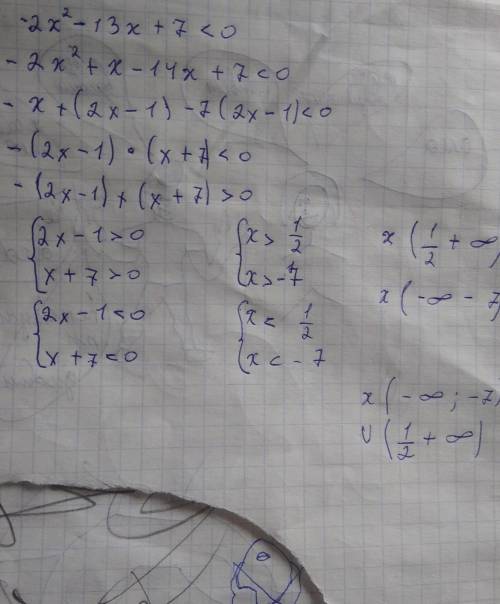 -2x² - 13x + 7 < 0
- 2x² + x - 14x + 7 < 0
- x + (2x - 1) - 7 (2x - 1) < 0
- (2x - 1) • (x + 7) < 0
- (2x - 1) × (x + 7) > 0
{2x - 1 > 0
x + 7 > 0
{x > 1/2
x > -7
x (1/2 + ∞)
{2x - 1 < 0
x + 7 < 0
{x < 1/2
x < - 7
x (-∞ - 7)
x (-∞ ; -7)
∪ (1/2 + ∞)